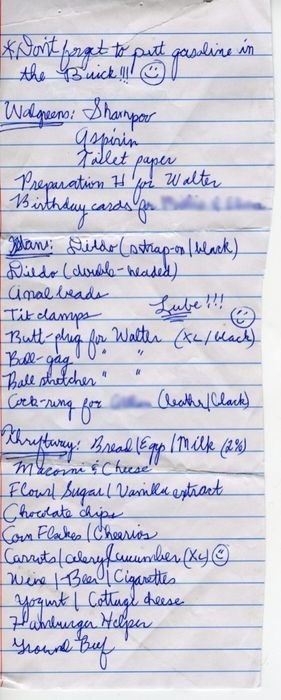 *Don't forget to putt gasoline in
the Buick!!!
Walgreens: Shampoo
Aspirin
Toilet paper
Preparation H for Walter
Birthday cards for
Dildo (strap-on/black)
Dildo (double-headed)
Anal beads
Tit clamps Lube!!!
Butt-plug for Walter (XL/black)
Ball-gag " "
Ball stretcher " "
Cock-ring for (leather/black)
Thriftway: Bread/Egg/Milk (2%)
Macoroni & Cheese
Flour/Sugar/Vanilla extract
Chocolate chips
Corn Flakes/Cheerios
Carrots/celery/cucumber (XL)
Wine/Beer/Cigarettes
Yogurt/Cottage cheese
Hamburger Helper
Ground Beef